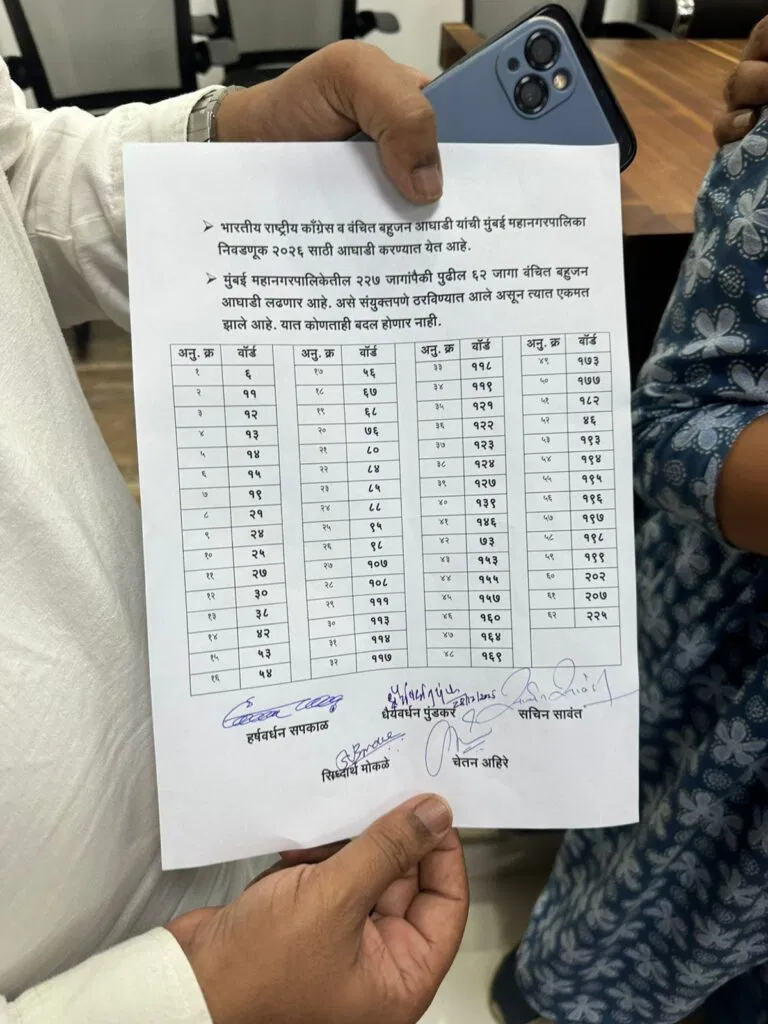 ➤ भारतीय राष्ट्रीय काँग्रेस व वंचित बहुजन आघाडी यांची मुंबई महानगरपालिका
निवडणूक २०२६ साठी आघाडी करण्यात येत आहे.
➤ मुंबई महानगरपालिकेतील २२७ जागांपैकी पुढील ६२ जागा वंचित बहुजन
आघाडी लढणार आहे. असे संयुक्तपणे ठरविण्यात आले असून त्यात एकमत
झाले आहे. यात कोणताही बदल होणार नाही.
अनु. क्र वॉर्ड
१ ६
२ ११
३ १२
४ १३
५ १४
६ १५
७ १९
८ २१
९ २४
१० २५
११ २७
१२ ३०
१३ ३८
१४ ४२
१५ ५३
१६ ५४
अनु. क्र वॉर्ड
१७ ५६
१८ ६७
१९ ६८
२० ७६
२१ ८०
२२ ८४
२३ ८५
२४ ८८
२५ ९५
२६ ९८
२७ १०७
२८ १०८
२९ १११
३० ११३
३१ ११४
३२ ११७
अनु. क्र वॉर्ड
३३ ११८
३४ ११९
३५ १२१
३६ १२२
३७ १२३
३८ १२४
३९ १२७
४० १३९
४१ १४६
४२ ७३
४३ १५३
४४ १५५
४५ १५७
४६ १६०
४७ १६४
४८ १६९
अनु. क्र वॉर्ड
४९ १७३
५० १७७
५१ १८२
५२ ४६
५३ १९३
५४ १९४
५५ १९५
५६ १९६
५७ १९७
५८ १९८
५९ १९९
६० २०२
६१ २०७
६२ २२५
हर्षवर्धन सपकाळ धैर्यवर्धन पुंडकर सचिन सावंत
सिध्दार्थ मोकळे चेतन अहिरे